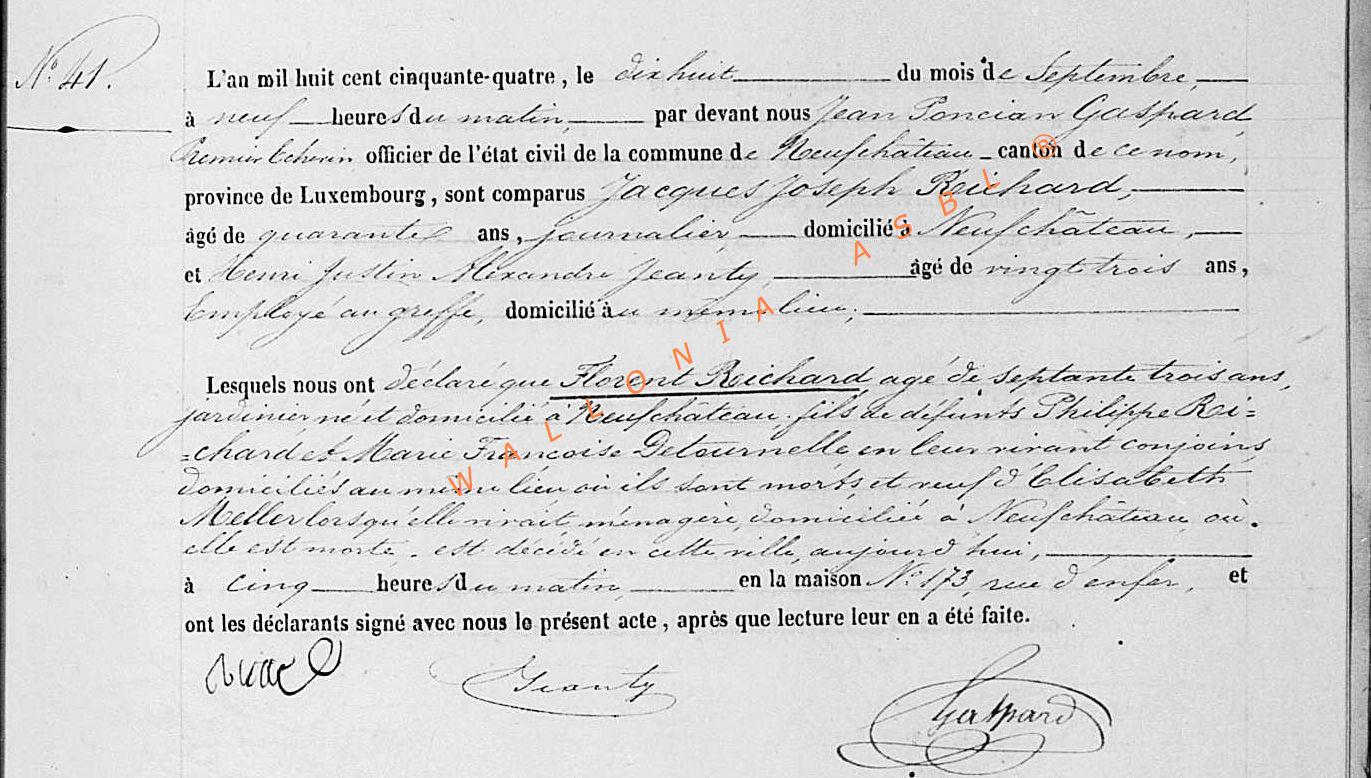 N.° 41.
L'an mil huit cent cinquante-quatre, le dix huit du mois de Septembre,
à neuf heures du matin, par devant nous Jean Poncian Gaspard,
Premier Echevin officier de l'état civil de la commune de Neufchâteau canton de ce nom,
province de Luxembourg, sont comparus Jacques Joseph Reichard,
âgé de quarante ans, journalier, domicilié à Neufchâteau,
et Henri Justin Alexandre Jeanty, âgé de vingt trois ans,
Employé au greffe, domicilié au même lieu;
Lesquels nous ont déclaré que Florent Reichard agé de septante trois ans,
jardinier né et domicilié à Neufchâteau, fils de défunts Philippe Rei=
=chard et Marie Francoise Detournelle en leur vivant conjoins
domiciliés au même lieu où ils sont morts, et veuf d'Elisabeth
Meller lorsqu'elle vivait, ménagère, domiciliée à Neufchâteau où
elle est morte, est décédé en cette ville, aujourd'hui,
à cinq heures du matin, en la maison N.° 173, rue d'enfer, et
ont les déclarants signé avec nous le présent acte, après que lecture leur en a été faite.
Jeanty
Gaspard
WALLONIA ASBL ®